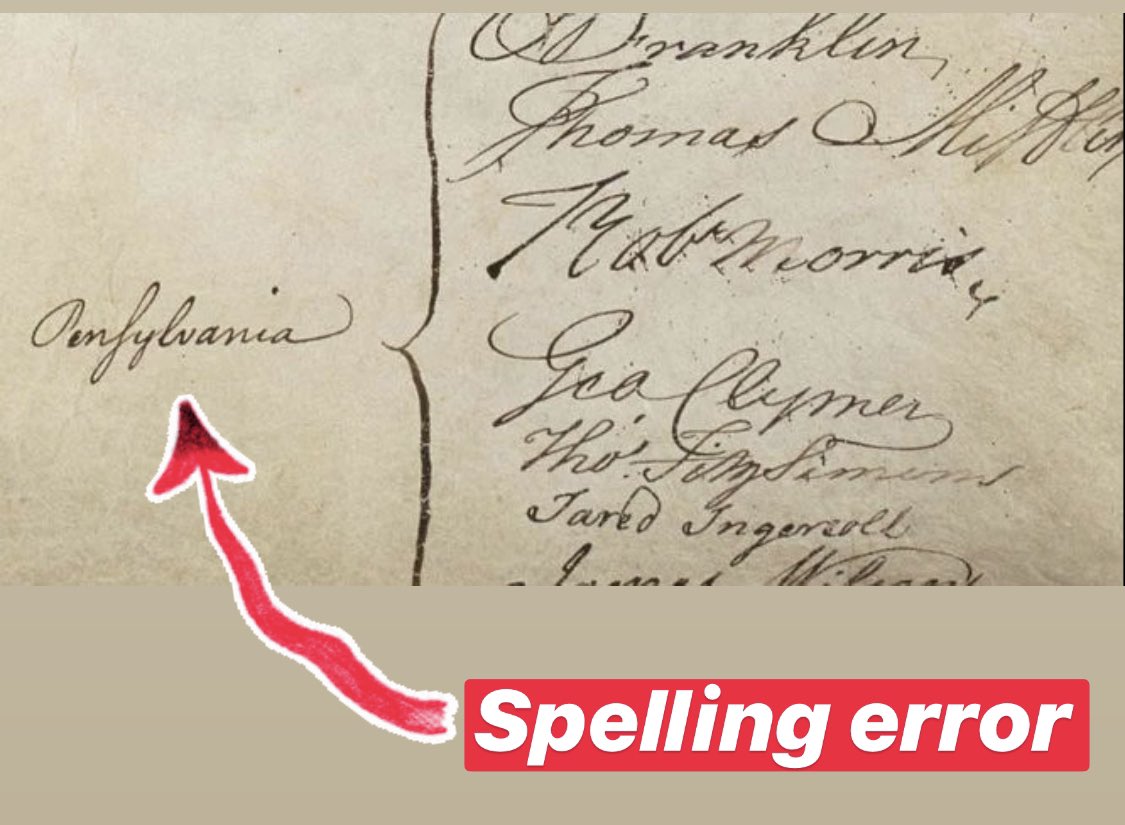 B Franklin
Thomas Mifflin
Robt Morris
Pensylvania
Geo Clymer
Thos FitzSimons
Jared Ingersoll
James Wilson
Spelling error